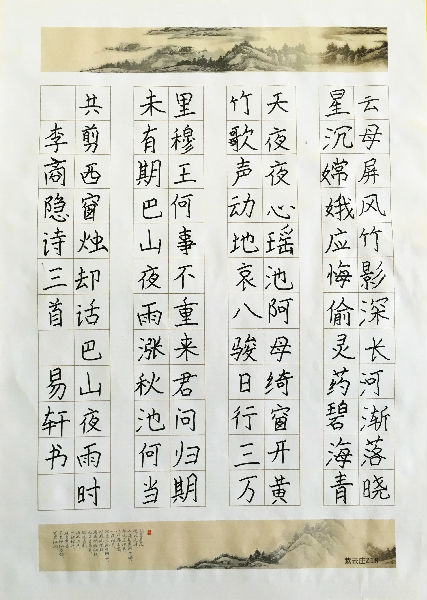 云母屏风竹影深长河渐落晓
星沉嫦娥应悔偷灵药碧海青
天夜夜心瑶池阿母绮窗开黄
竹歌声动地哀八骏日行三万
里穆王何事不重来君问归期
未有期巴山夜雨涨秋池何当
共剪西窗烛却话巴山夜雨时
李商隐诗三首 易轩书